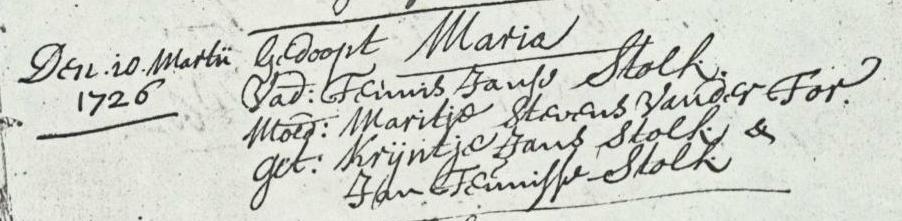 Den. 10. Martii Gedoopt Maria
1726
Vad: Teunis Janse Stolk.
Moed: Maritje Stevens Vander Tor.
Get: Krijntje Jans Stolk &
Jan Teunisse Stolk